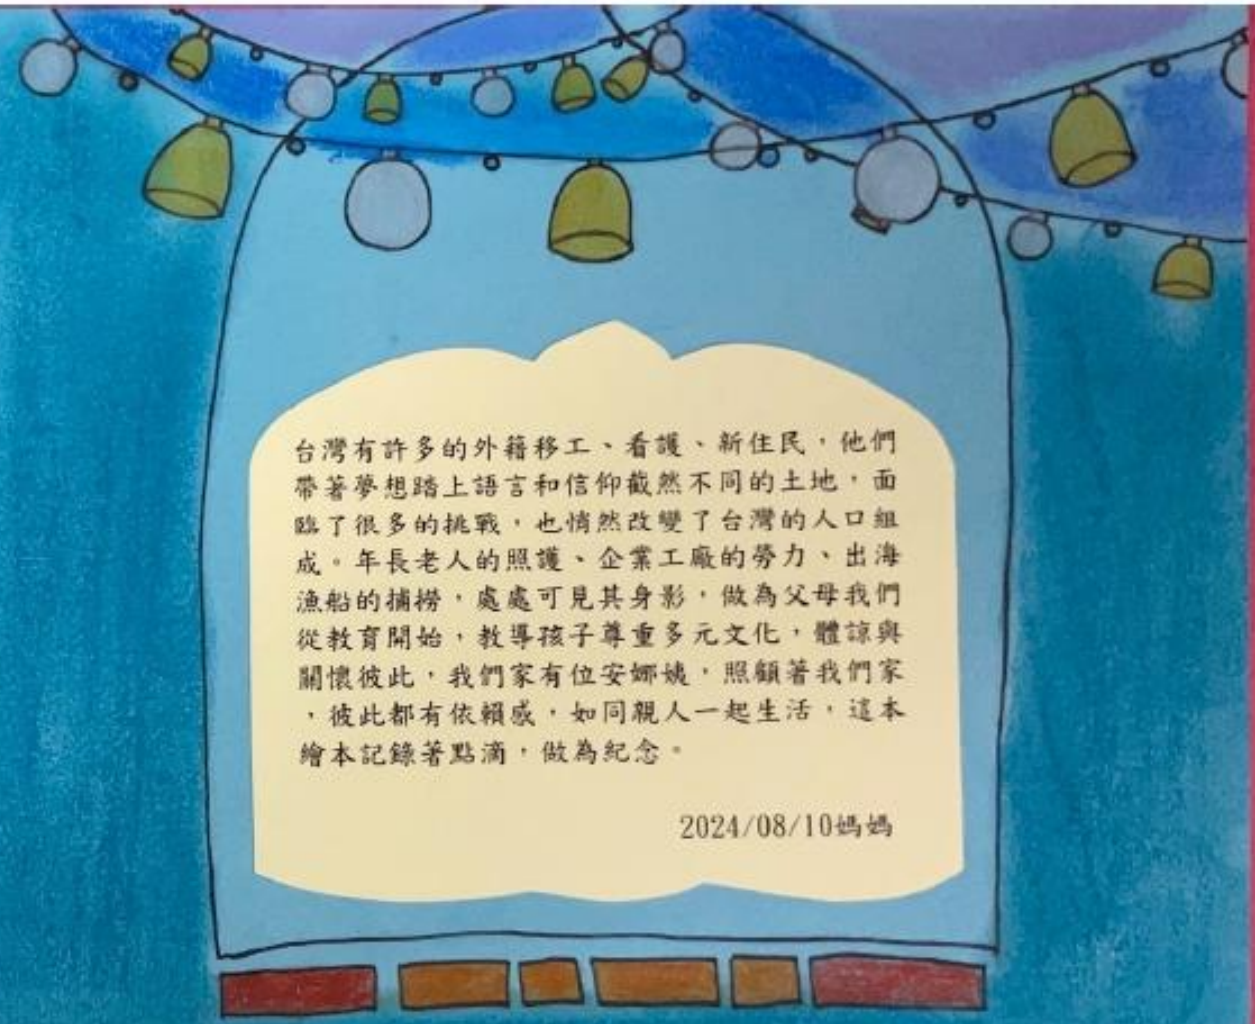 台灣有許多的外籍移工、看護、新住民，他們
帶著夢想踏上語言和信仰截然不同的土地，面
臨了很多的挑戰，也悄然改變了台灣的人口組
成。年長老人的照護、企業工廠的勞力、出海
漁船的捕撈，處處可見其身影，做為父母我們
從教育開始，教導孩子尊重多元文化，體諒與
關懷彼此，我們家有位安娜姨，照顧著我們家
，彼此都有依賴感，如同親人一起生活，這本
繪本記錄著點滴，做為紀念。
2024/08/10媽媽